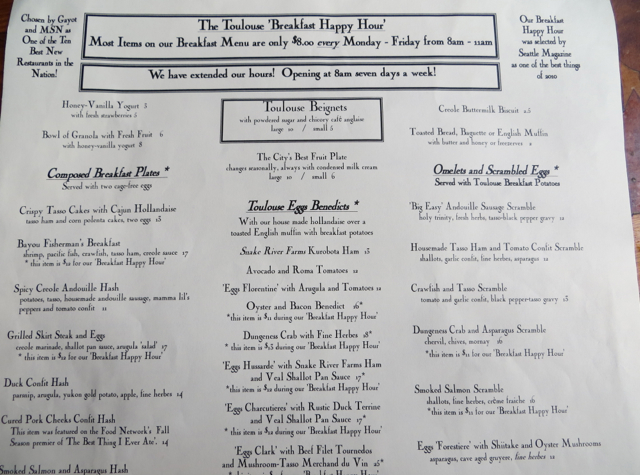 Chosen by Gayot
and MSN as
One of the Ten
Best New
Restaurants in the
Nation!
The Toulouse 'Breakfast Happy Hour'
Most Items on our Breakfast Menu are only $8.00 every Monday - Friday from 8am - 11am
We have extended our hours! Opening at 8am seven days a week!
Our Breakfast
Happy Hour
was selected by
Seattle Magazine
as one of the best things
of 2010
Honey-Vanilla Yogurt 5
with fresh strawberries 5
Bowl of Granola with Fresh Fruit 6
with honey-vanilla yogurt 8
Composed Breakfast Plates *
Served with two cage-free eggs
Crispy Tasso Cakes with Cajun Hollandaise
tasso ham and corn polenta cakes, two eggs 13
Bayou Fisherman's Breakfast
shrimp, pacific fish, crawfish, tasso ham, creole sauce 17
* this item is $12 for our 'Breakfast Happy Hour'
Spicy Creole Andouille Hash
potatoes, tasso, housemade andouille sausage, mamma lil's
peppers and tomato confit 11
Grilled Skirt Steak and Eggs
creole marinade, shallot pan sauce, arugula 'salad' 17
* this item is $12 for our 'Breakfast Happy Hour'
Duck Confit Hash
parsnip, arugula, yukon gold potato, apple, fine herbes 14
Cured Pork Cheeks Confit Hash
This item was featured on the Food Network's Fall
Season premier of 'The Best Thing I Ever Ate'. 14
Smoked Salmon and Asparagus Hash
Toulouse Beignets
with powdered sugar and chicory café anglaise
large 10 / small 5
The City's Best Fruit Plate
changes seasonally, always with condensed milk cream
large 10 / small 6
Toulouse Eggs Benedicts *
With our house made hollandaise over a
toasted English muffin with breakfast potatoes
Snake River Farms Kurobota Ham 13
Avocado and Roma Tomatoes 12
'Eggs Florentine' with Arugula and Tomatoes 12
Oyster and Bacon Benedict 16*
*this item is $11 during our 'Breakfast Happy Hour'
Dungeness Crab with Fine Herbes 18*
* this item is $13 during our 'Breakfast Happy Hour'
'Eggs Hussarde' with Snake River Farms Ham
and Veal Shallot Pan Sauce 17*
*this item is $12 during our 'Breakfast Happy Hour'
'Eggs Charcutieres' with Rustic Duck Terrine
and Veal Shallot Pan Sauce 17*
*this item is $12 during our 'Breakfast Happy Hour'
'Eggs Clark' with Beef Filet Tournedos
and Mushroom-Tasso Merchand du Vin
* this item is during our 'Breakfast Happy Hour'
Creole Buttermilk Biscuit 2.5
Toasted Bread, Baguette or English Muffin
with butter and honey or preserves 2
Omelets and Scrambled Eggs *
Served with Toulouse Breakfast Potatoes
'Big Easy' Andouille Sausage Scramble
holy trinity, fresh herbs, tasso-black pepper gravy 12
Housemade Tasso Ham and Tomato Confit Scramble
shallots, garlic confit, fine herbes, asparagus 12
Crawfish and Tasso Scramble
tomato and garlic confit, black pepper-tasso gravy 13
Dungeness Crab and Asparagus Scramble
chervil, chives, mornay 16
*this item is $11 for our 'Breakfast Happy Hour'
Smoked Salmon Scramble
shallots, fine herbes, crème fraiche 16
* this item is $11 for our 'Breakfast Happy Hour'
Eggs 'Forestiere' with Shiitake and Oyster Mushrooms
asparagus, cave aged gruyere, fine herbes 12